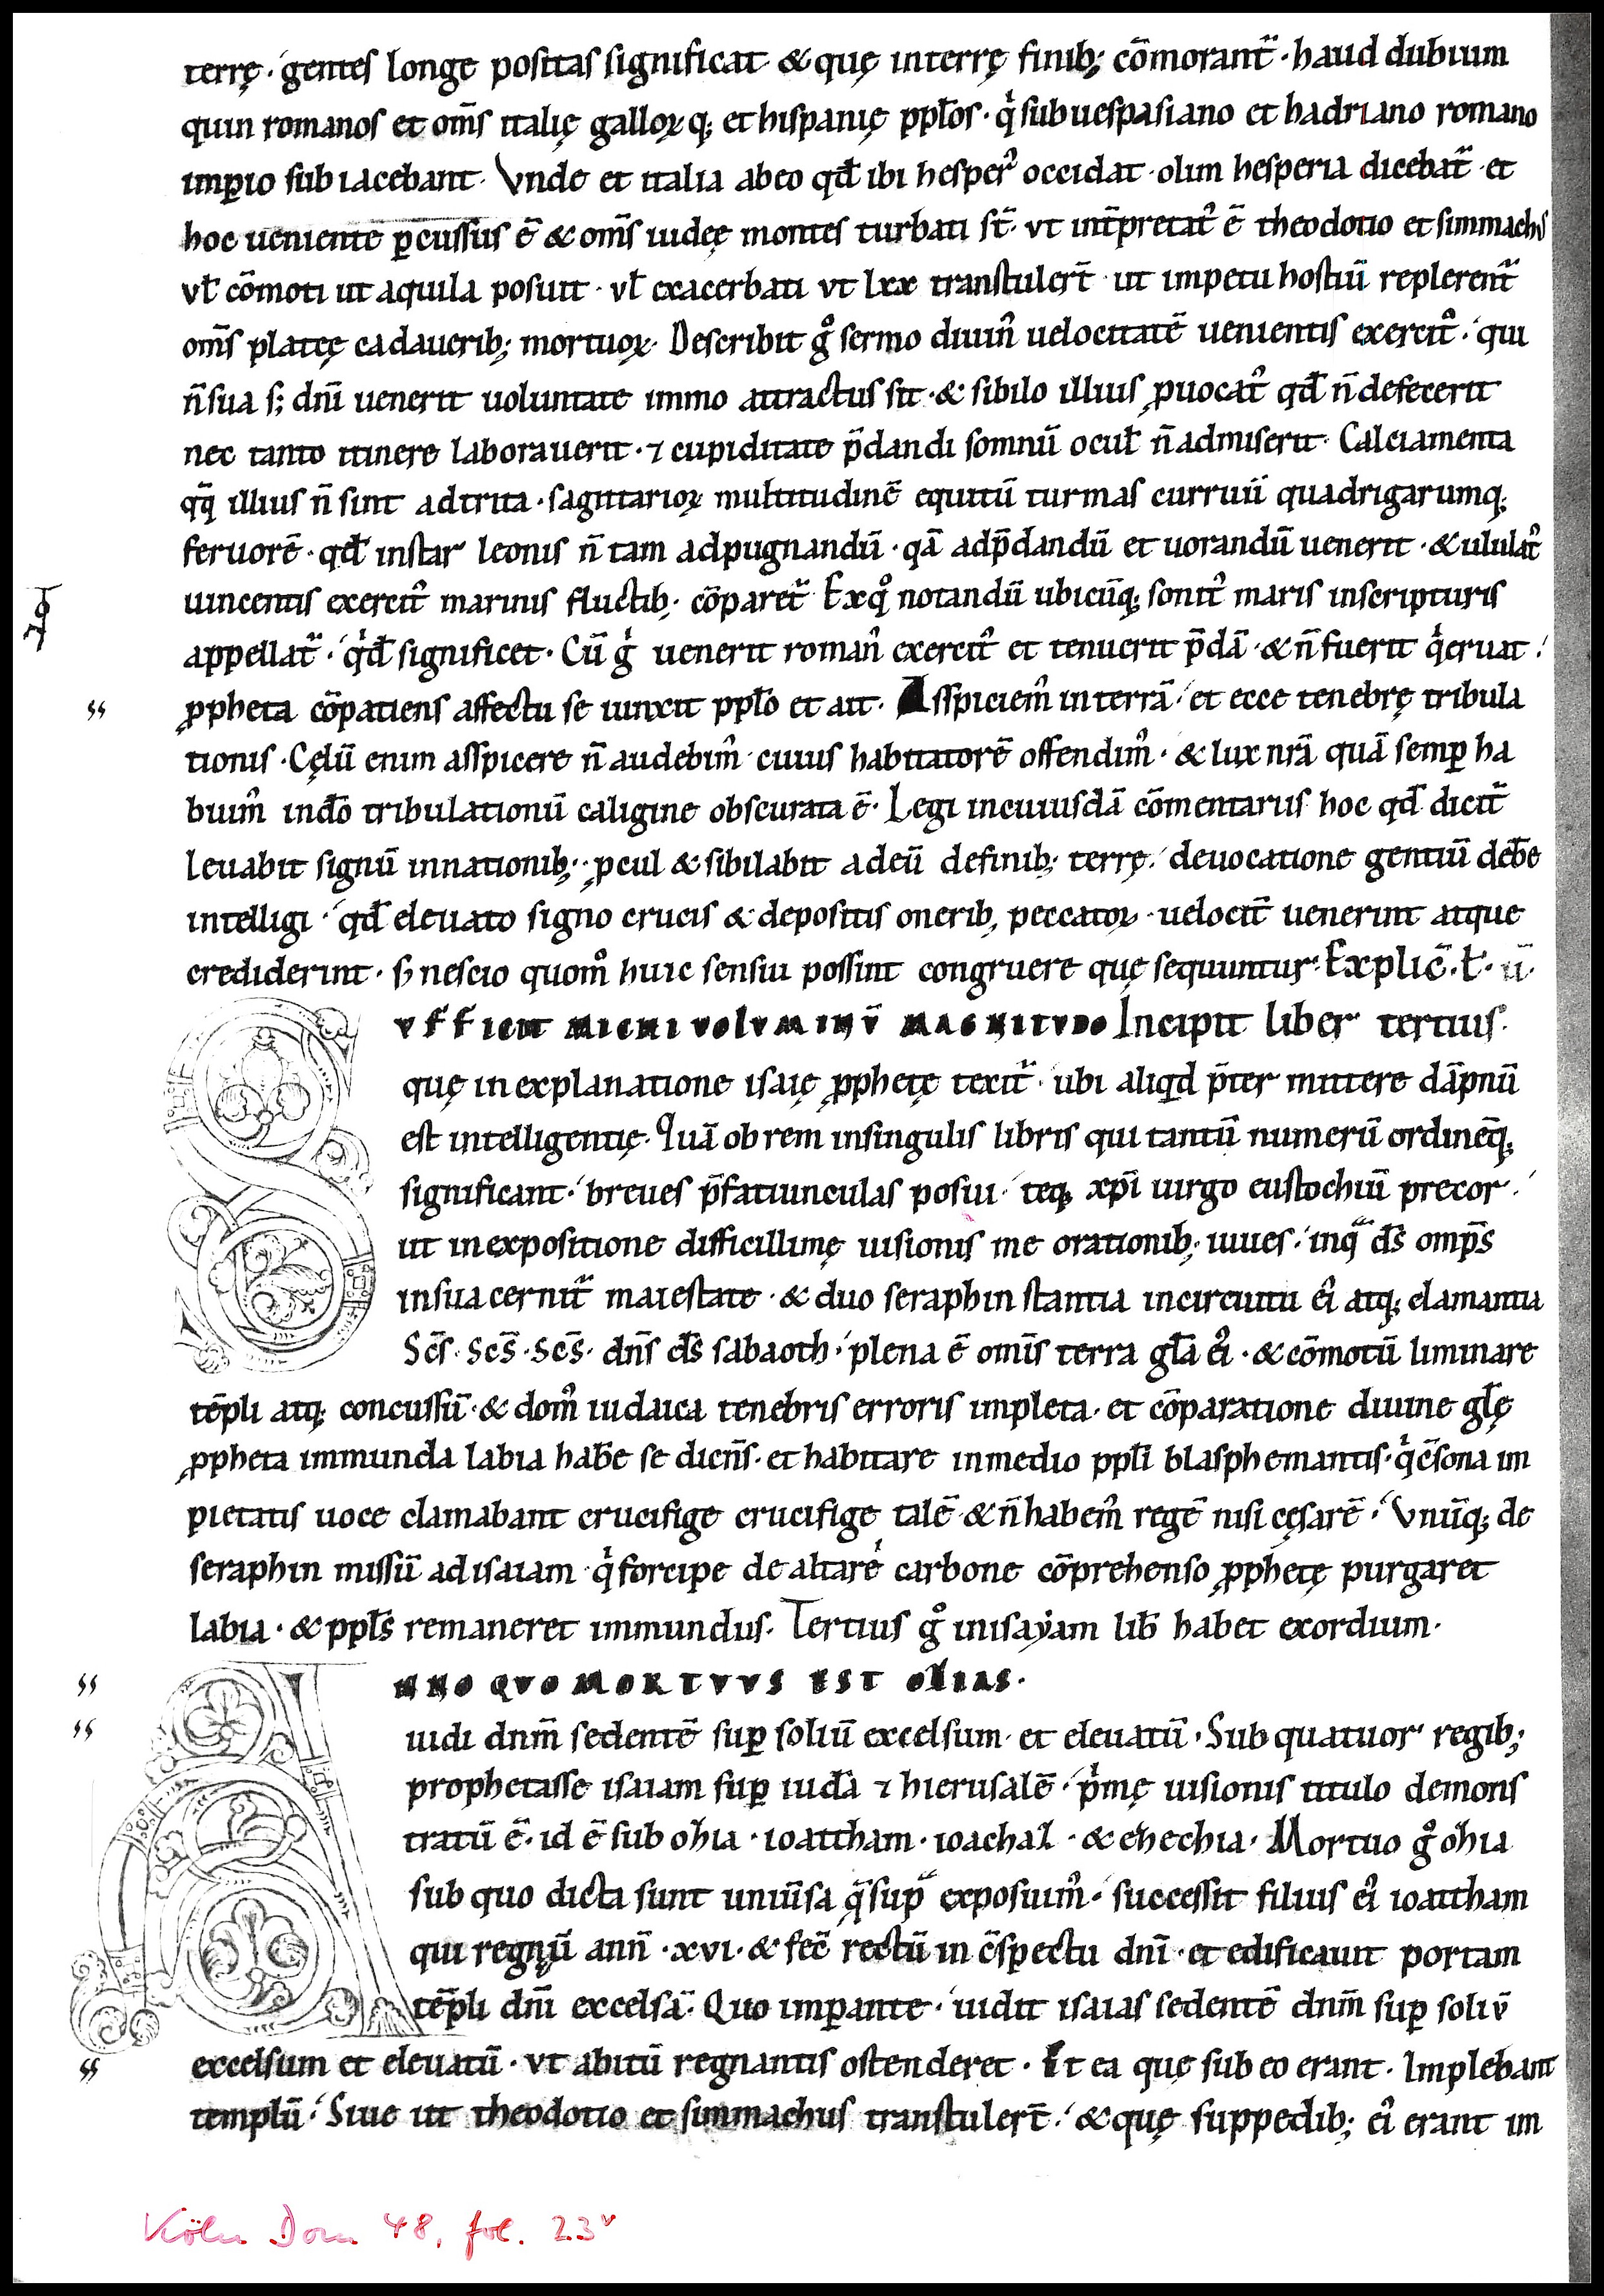 terrę · gentes longe positas significat · & quę interrę finib; cōmorant᷑ · haud dubium
quin romanos et om̄s italię galloꝝ q; et hispanię ppl̄os · qͥ sub uespasiano et hadriano romano
imꝑio sub iacebant · Vnde et italia abeo qđ ibi hesperꝰ occidat · olim hesperia dicebat᷑ · et
hoc ueniente ꝑcussus ē & om̄s iudeę montes turbati st̄ · vt int̄pretatꝰ ē theodotio et simmachꝰ
vł cōmoti ut aquila posuit · vł exacerbati vt lxx transtuler̄t · ut impetu hostiū replerent᷑
om̄s plateę cadauerib; mortuoꝝ · Describit gͦ sermo diuinꝰ uelocitatē uenientis exercitꝰ · qui
n̄ sua s; dn̄i uenerit uoluntate immo attractus sit · & sibilo illius ꝓuocatꝰ qđ n̄ defecerit
nec tanto itinere laborauerit · ⁊ cupiditate p̄dandi somnū ocuł n̄ admiserit · Calciamenta
qq̄ illius n̄ sint adtrita · sagittarioꝝ multitudinē equitū turmas curruū quadrigarumq;
feruorē · qđ instar leonis n̄ tam adpugnandū · qā adp̄dandū et uorandū uenerit · & ululatꝰ
uincentis exercitꝰ marinis fluctib; cōparet᷑ Exqͦ notandū ubicūq; sonitꝰ maris inscripturis
appellat᷑ · qͥđ significet · Cū gͥ uenerit romanꝰ exercitꝰ et tenuerit p̄dā · & n̄ fuerit qͥ eruat ·
ꝓpheta cōpatiens affectu se iunxit ppl̄o et ait · Asspiciemꝰ in terrā · et ecce tenebrę tribula
tionis · Cęlū enim asspicere n̄ audebimꝰ cuius habitatorē offendimꝰ · & lux nr̄a quā semꝑ ha
buimꝰ indo tribulationū caligine obscurata ē · Legi incuiusdā cōmentariis hoc qđ dicit᷑
leuabit signū innationib; ꝓcul & sibilabit adeū definib; terrę · deuocatione gentiū deb̄e
intelligi · qđ eleuato signo crucis & depositis onerib; peccatoꝝ · uelocit̄ uenerint atque
crediderint · ꟗ nescio quomͦ huic sensui possint congruere quę sequuntur · Explic̄ · ł · ii ·
Vfficit michi volvminū magnitvdo Incipit liber tertius ·
quę inexplanatione isaię ꝓphetę texit᷑ · ubi aliqͥd p̄ter mittere dāpnū
est intelligentię · Quā ob rem insingulis libris qui tantū numerū ordinēq;
significant · breues p̄fatiunculas posui · teq; xp̄i uirgo eustochiū precor ·
ut inexpositione difficillimę uisionis me orationib; iuues · inqᷓ ds̄ omp̄s
insua cernit᷑ maiestate · & duo seraphin stantia incircuitu eiꝰ atq; clamantia
Sc̄s · Sc̄s · Sc̄s · dn̄s ds̄ sabaoth · plena ē omīs terra gl̄a eiꝰ · & cōmotū liminare
tēpli atq; concussū · & domꝰ iudaica tenebris erroris impleta · et cōparatione diuine gl̄ę
ꝓpheta immunda labia hab̄e se dicn̄s · et habitare inmedio ppl̄i blasphemantis · qͥ c̄sona im
pietatis uoce clamabant crucifige crucifige talē & n̄ habemꝰ regē nisi cęsarē · Vnūq; de
seraphin missū ad isaiam · qͥ forcipe de altare carbone cōprehenso ꝓphetę purgaret
labia · & ppl̄s remaneret immundus · Tertius gͦ inisayam lib̄ habet exordium ·
NNO QVO MORTVVS EST OZIAS ·
uidi dnm̄ sedentē suꝑ soliū excelsum · et eleuatū · Sub quatuor regib;
prophetasse isaiam suꝑ iudā ⁊ hierusalē · pͥmę uisionis titulo demons
tratū ē · id ē sub ohia · ioattham · ioachaz · & ehechia · Mortuo gͦ ohia
sub quo dicta sunt uniūsa q̄ supᷓ exposuimꝰ · successit filius eiꝰ ioattham
qui regnū ann̄ · xvi · & fec̄ rectū in c̄spectu dn̄i · et edificauit portam
tēpli dn̄i excelsā · Quo imꝑante · uidit isaias sedentē dnm̄ suꝑ soliv̄
excelsum et eleuatū · vt abitū regnantis ostenderet · Et ea que sub eo erant · Implebant
templū · Siue ut theodotio et simmachus transtuler̄t · & quę suppedib; eiꝰ erant im
Köln Dom 48, fol. 23ᵛ